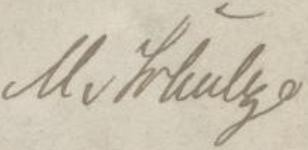 M. Schulze